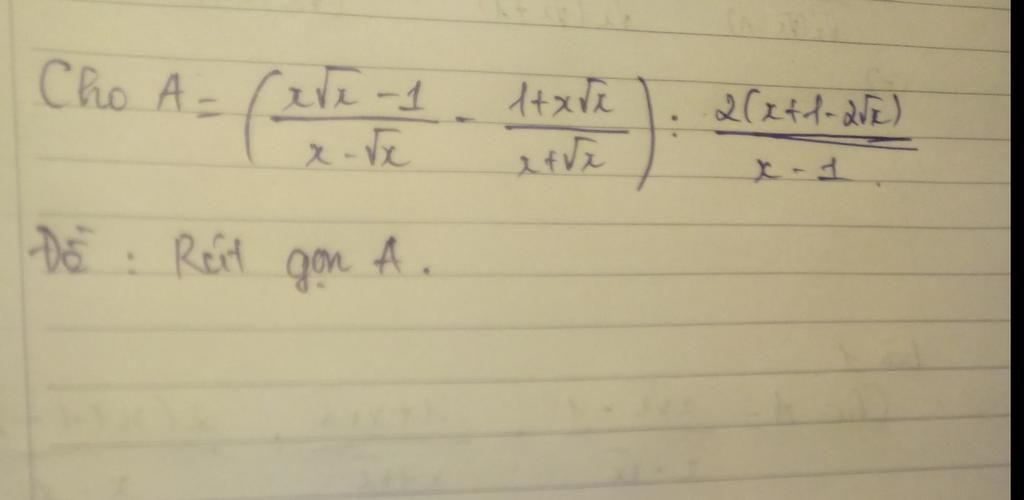 Cho A = ( (x√x - 1)/(x - √x) - (1 + x√x)/(x + √x) ) : 2(x + 1 - 2√x)/(x - 1)
Đề : Rút gọn A .